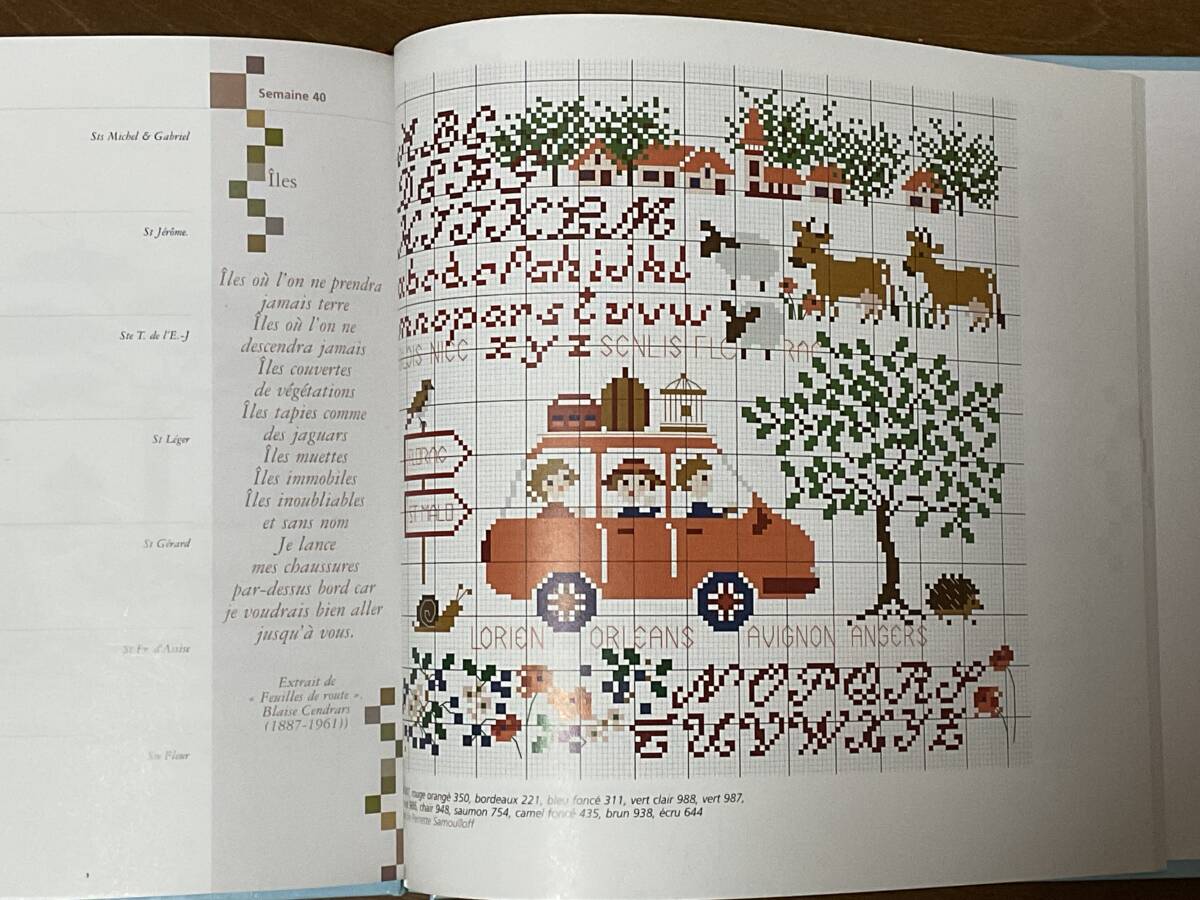 Semaine 40
Sts Michel & Gabriel
Îles
St Jérôme.
Ste T. de l'E.-J
St Léger
St Gérard
St Fr. d'Assise
Ste Fleur
Îles où l'on ne prendra
jamais terre
Îles où l'on ne
descendra jamais
Îles couvertes
de végétations
Îles tapies comme
des jaguars
Îles muettes
Îles immobiles
Îles inoubliables
et sans nom
Je lance
mes chaussures
par-dessus bord car
je voudrais bien aller
jusqu'à vous.
Extrait de
« Feuilles de route ».
Blaise Cendrars
(1887-1961))
A B C
K L M
a b c d e f g h i j k l
m n o p q r s t u v w
x y z
NICE SENLIS
FLORAC
ST MALO
LORIEN ORLEANS AVIGNON ANGERS
N O P Q R S
T U V W X Y Z
rouge orangé 350, bordeaux 221, bleu foncé 311, vert clair 988, vert 987,
chair 948, saumon 754, camel foncé 435, brun 938, écru 644
Pierrette Samouiloff